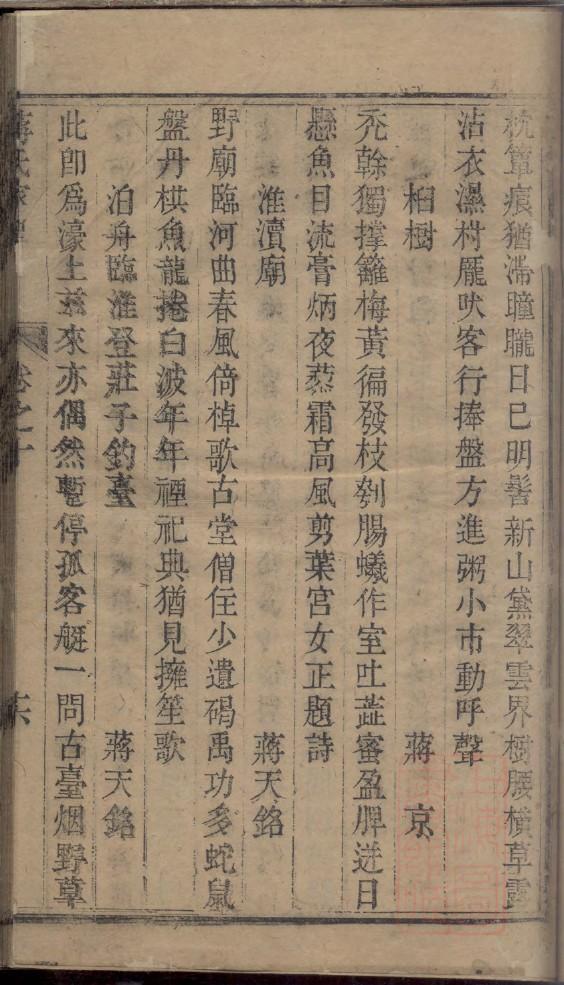 枕簟痕猶滯瞳矓日已明髻新山黛翠雲界樹腰橫草露
沾衣濕村厖吠客行捧盤方進粥小市動呼聲
桕樹　蔣京
禿榦獨撐籬梅黃徧發枝刳腸蟻作室吐蘂蜜盈脾迸日
懸魚目流膏炳夜蓺霜高風剪葉宮女正題詩
淮瀆廟　蔣天銘
野廟臨河曲春風倚棹歌古堂僧住少遺碣禹功多蛇鼠
盤丹棋魚龍捲白波年年禋祀典猶見擁笙歌
泊舟臨淮登莊子釣臺　蔣天銘
此卽爲濠上兹來亦偶然蹔停孤客艇一問古臺烟野草
蔣氏家　卷之十　六